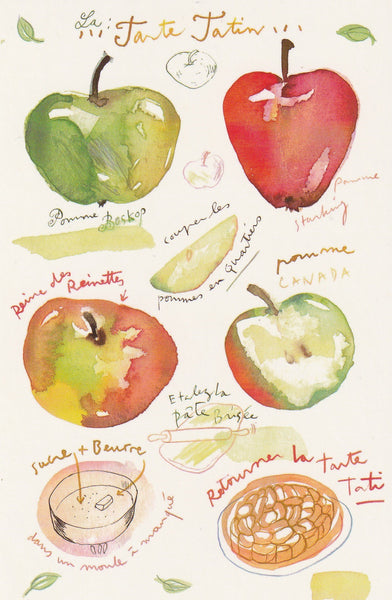 La:
Tarte Tatin...
Pomme Boskop
Pomme
Starking
couper les
pommes en quartiers
pomme
CANADA
Reine des
Reinettes
Etalez la
pâte Brisée
Sucre + Beurre
dans un moule à manqué
Retourner la tarte
Tati